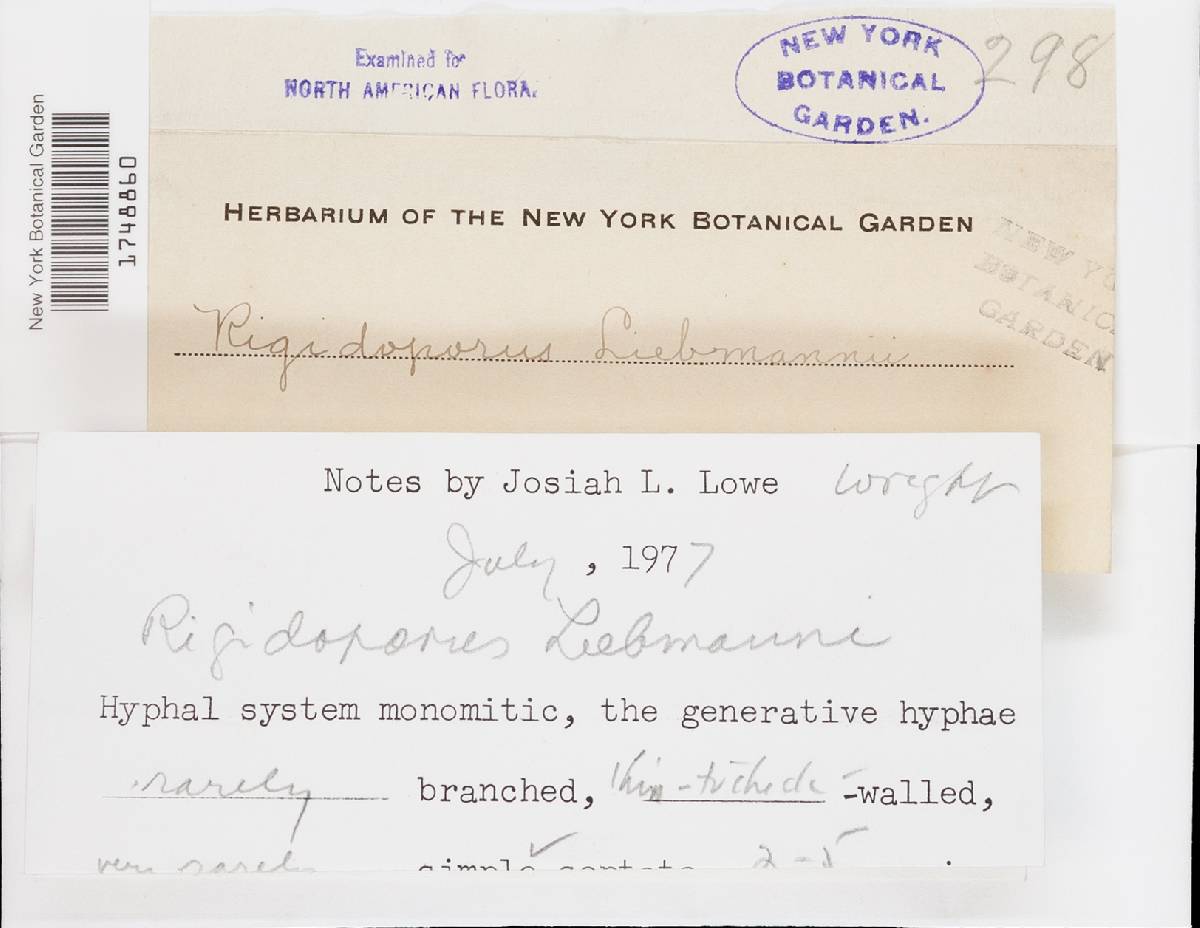 New York Botanical Garden
1748860
Examined for
NORTH AMERICAN FLORA.
NEW YORK
BOTANICAL
GARDEN.
298
HERBARIUM OF THE NEW YORK BOTANICAL GARDEN
NEW YO
BOTANIC
GARDEN
Rigidoporus Liebmannii
Notes by Josiah L. Lowe Wright
July, 1977
Rigidoporus Liebmanni
Hyphal system monomitic, the generative hyphae
rarely branched, thin- -walled,
very rarely simple septate 2-5